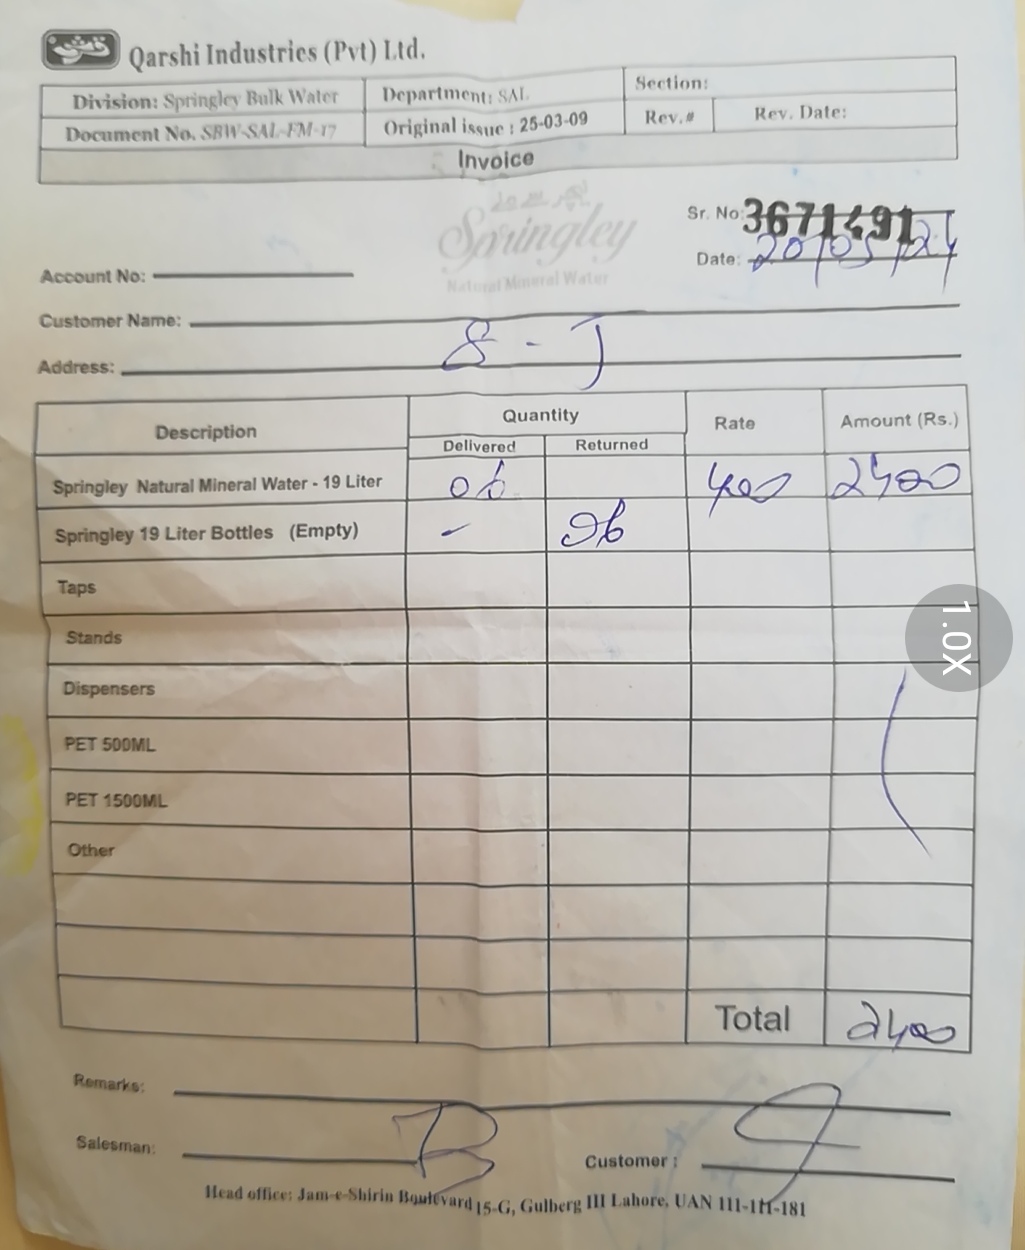 قرشی
Qarshi Industries (Pvt) Ltd.
Division: Springley Bulk Water Department: SAL Section:
Document No. SBW-SAL-FM-17 Original issue : 25-03-09 Rev.# Rev. Date:
Invoice
Springley
Natural Mineral Water
Sr. No: 3671491
Date: 20/05/24
Account No:
Customer Name:
8 - J
Address:
Description Quantity Rate Amount (Rs.)
Delivered Returned
Springley Natural Mineral Water - 19 Liter 06 400 2400
Springley 19 Liter Bottles (Empty) - 06
Taps
Stands
Dispensers
PET 500ML
PET 1500ML
Other
Total 2400
Remarks:
Salesman:
Customer :
Head office: Jam-e-Shirin Boulevard 15-G, Gulberg III Lahore, UAN 111-111-181
1.0X